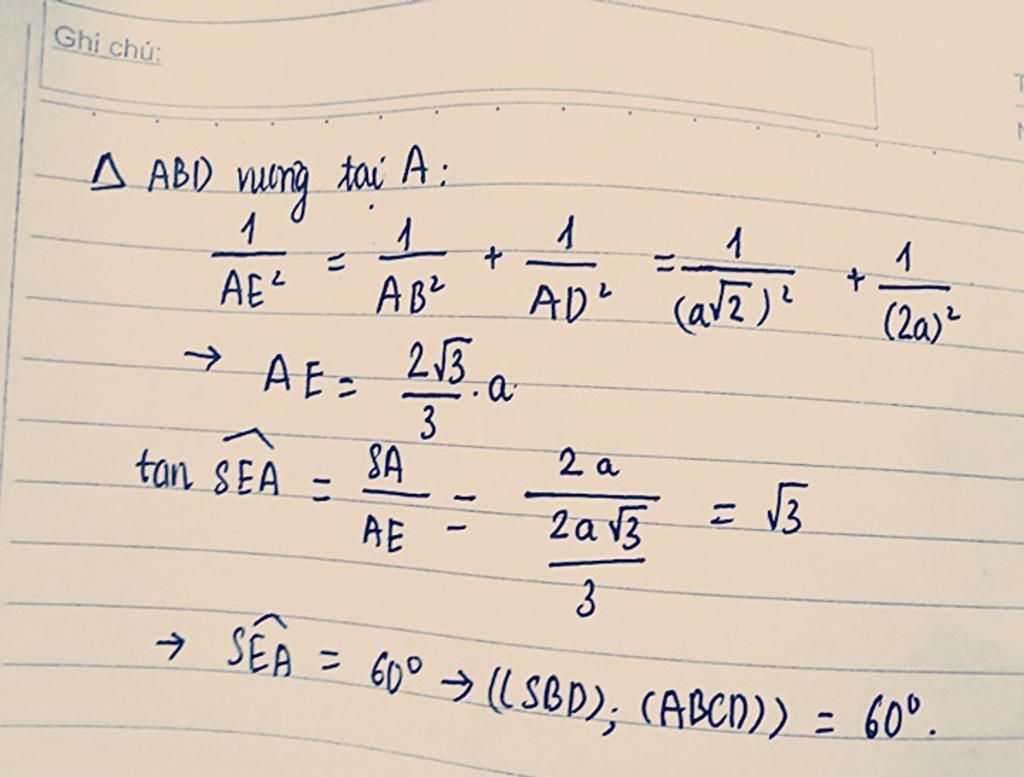 Ghi chú:
Δ ABD vuông tại A:
1/AE² = 1/AB² + 1/AD² = 1/(a√2)² + 1/(2a)²
→ AE = 2√3/3 . a
tan SEA = SA/AE = 2a/(2a√3/3) = √3
→ SEA = 60⁰ → ((SBD); (ABCD)) = 60⁰.